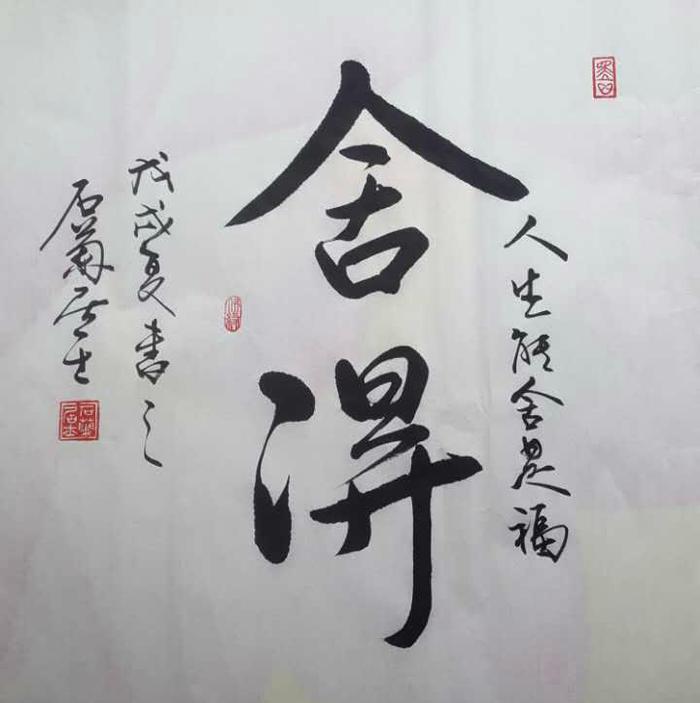 人生能舍是福
舍得
戊戌夏書之
石菊居士